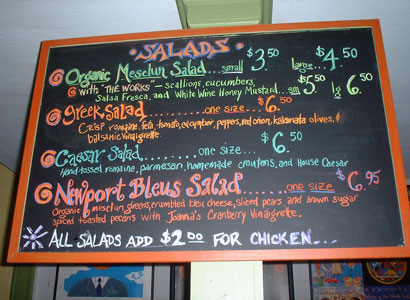 • SALADS •
Organic Mesclun Salad... small $3.50 large... $4.50
with "THE WORKS" - scallions, cucumbers,
Salsa Fresca, and White Wine Honey Mustard... sm $5.50 lg 6.50
Greek Salad............ one size... $6.50
Crisp romaine, feta, tomato, cucumber, peppers, red onion, kalamata olives, &
balsamic vinaigrette.
Caesar Salad............ one size... $6.50
Hand tossed romaine, parmesan homemade croutons, and House Caesar
Newport Bleus Salad........one size... $6.95
Organic mesclun greens, crumbled bleu cheese, sliced pears and brown sugar
spiced toasted pecans with Joanna's Cranberry Vinaigrette.
ALL SALADS ADD $2.00 FOR CHICKEN...